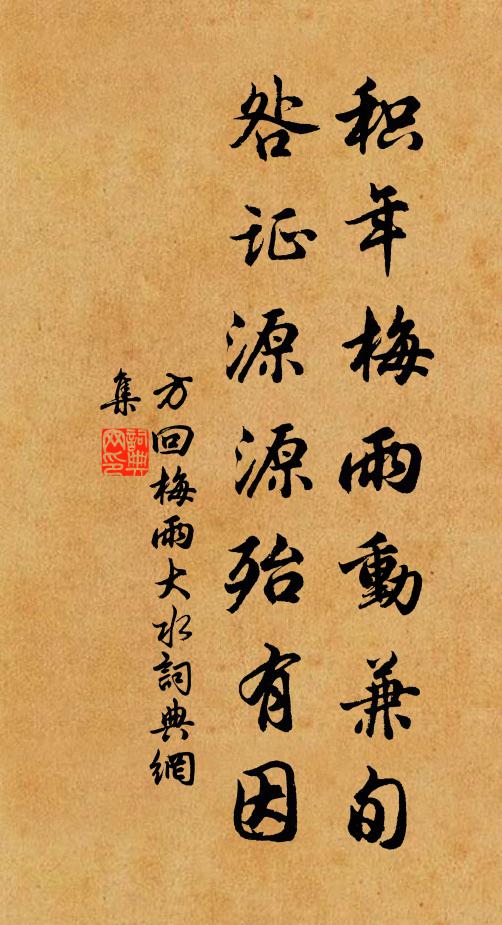 积年梅雨動兼旬
咎证源源殆有因
方回梅雨大水詞典網
集
詞典网印